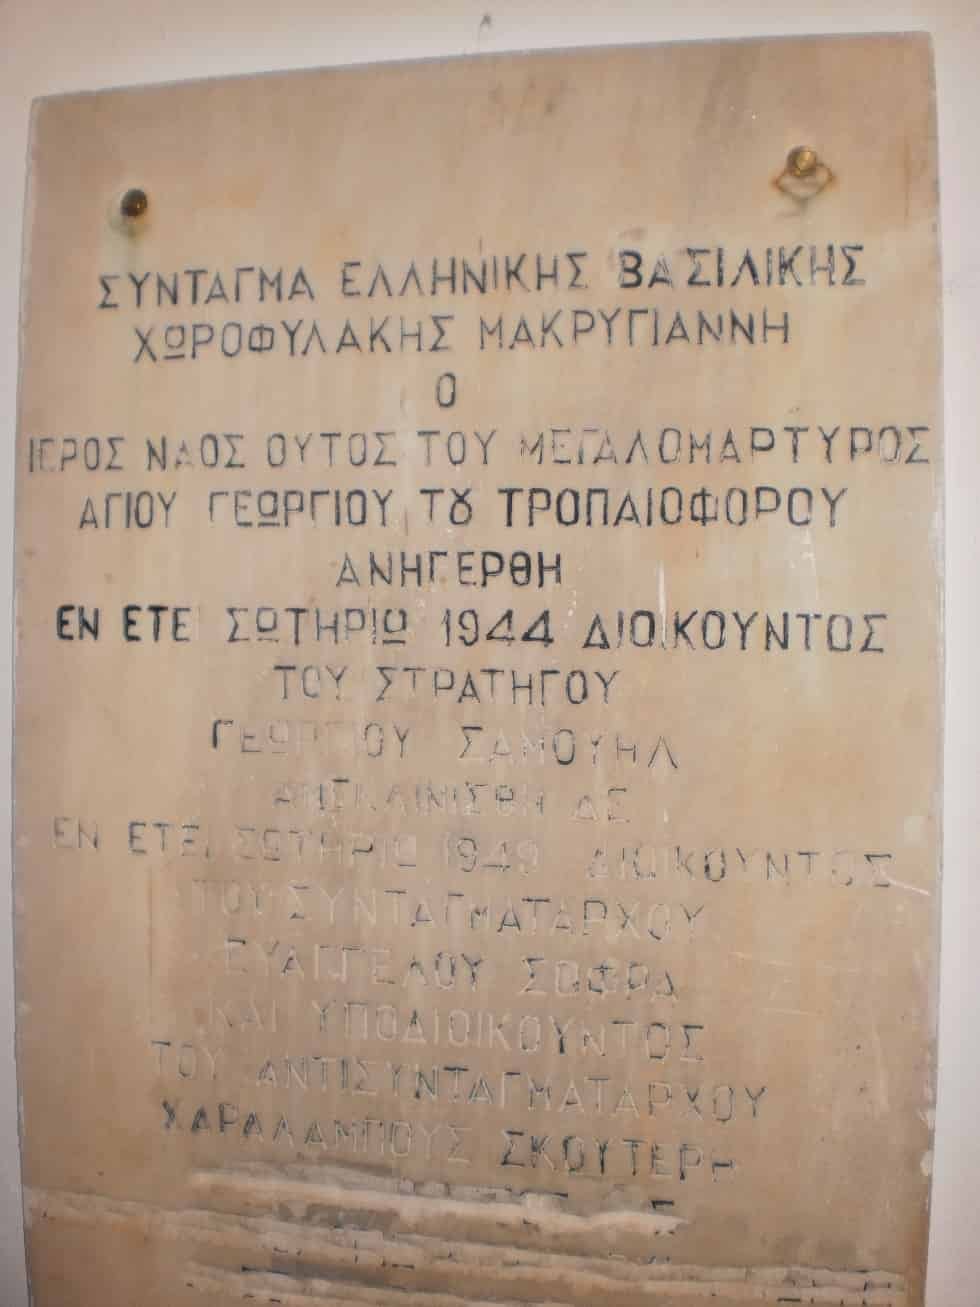 ΣΥΝΤΑΓΜΑ ΕΛΛΗΝΙΚΗΣ ΒΑΣΙΛΙΚΗΣ
ΧΩΡΟΦΥΛΑΚΗΣ ΜΑΚΡΥΓΙΑΝΝΗ
Ο
ΙΕΡΟΣ ΝΑΟΣ ΟΥΤΟΣ ΤΟΥ ΜΕΓΑΛΟΜΑΡΤΥΡΟΣ
ΑΓΙΟΥ ΓΕΩΡΓΙΟΥ ΤȢ ΤΡΟΠΑΙΟΦΟΡΟΥ
ΑΝΗΓΕΡΘΗ
ΕΝ ΕΤΕΙ ΣΩΤΗΡΙΩ 1944 ΔΙΟΙΚΟΥΝΤΟΣ
ΤΟΥ ΣΤΡΑΤΗΓΟΥ
ΓΕΩΡΓΙΟΥ ΣΑΜΟΥΗΛ
ΔΕ
ΕΝ ΕΤΕΙ ΣΩΤΗΡΙΩ 1949 ΔΙΟΙΚΟΥΝΤΟΣ
ΤΟΥ ΣΥΝΤΑΓΜΑΤΑΡΧΟΥ
ΕΥΑΓΓΕΛΟΥ ΣΩΦΡΑ
ΚΑΙ ΥΠΟΔΙΟΙΚΟΥΝΤΟΣ
ΤΟΥ ΑΝΤΙΣΥΝΤΑΓΜΑΤΑΡΧΟΥ
ΧΑΡΑΛΑΜΠΟΥΣ ΣΚΟΥΤΕΡΗ